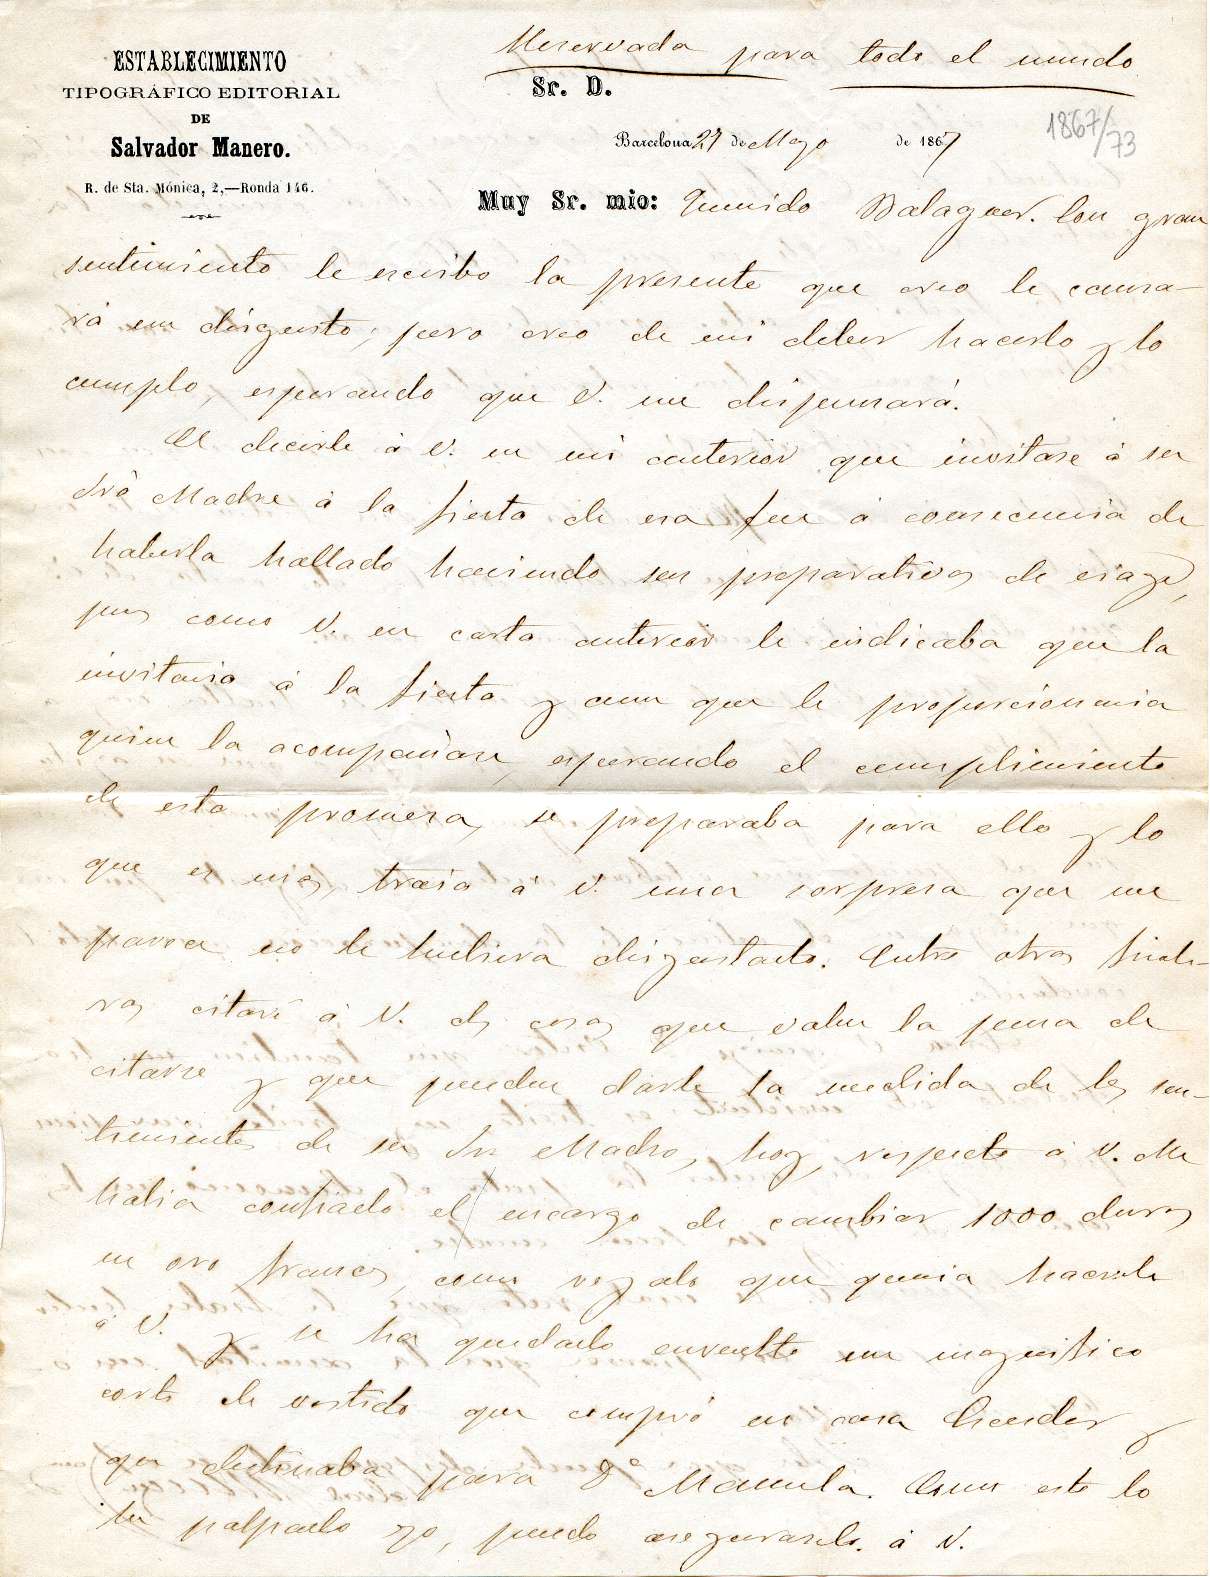 Reservada para todo el mundo
ESTABLECIMIENTO
TIPOGRÁFICO EDITORIAL
DE
Salvador Manero.
R. de Sta. Mónica, 2,—Ronda 146.
Sr. D.
Barcelona 27 de Mayo de 1867
1867/73
Muy Sr. mio: Querido Balaguer. Con gran
sentimiento le escribo la presente que creo le causa-
rá un disgusto, pero creo de mi deber hacerlo y lo
cumplo, esperando que V. me dispensará.
Al decirle á V. en mi anterior que invitase á su
Sra Madre á la fiesta de esa fue á consecuencia de
haberla hallado haciendo sus preparativos de viage,
pues como V. en carta anterior le indicaba que la
invitaria á la fiesta y aun que le proporcionaria
quien la acompañase, esperando el cumplimiento
de esta promesa, se preparaba para ello y lo
que es mas, traia á V. una sorpresa que me
parece no le hubiera disgustado. Entre otras
citaré á V. dos cosas que valen la pena de
citarse y que pueden darle la medida de los sen-
timientos de su Sra Madre, hoy, respecto á V. Me
habia confiado el encargo de cambiar 1000 duros
en oro frances, como regalo que queria hacerle
á V. y se ha quedado envuelto un magnifico
corte de vestido que compró en casa y
que destinaba para Dª Manuela. Como esto lo
he palpado yo, puedo asegurarselo á V.